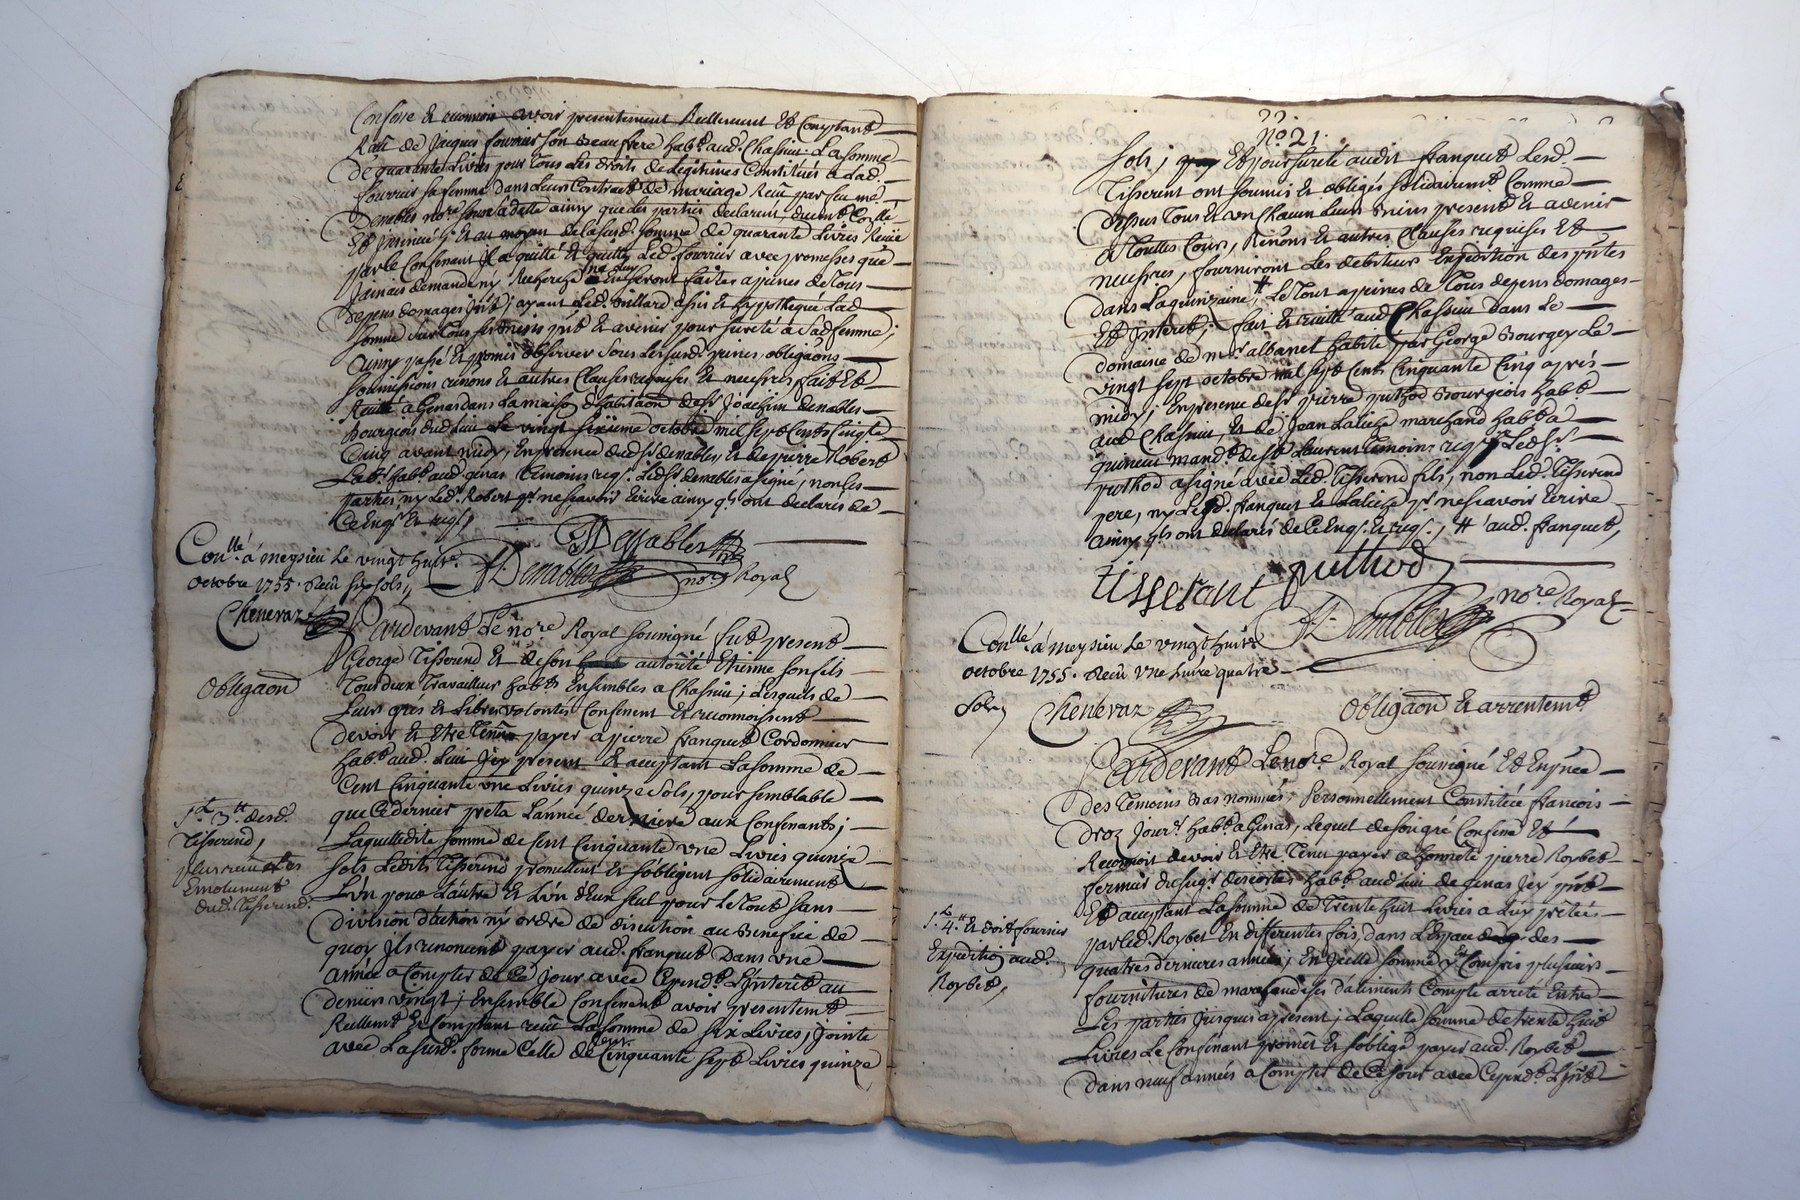 Confesse et reconnoit avoir presentement Reellement Et Comptant
Reçû de Jacques fourrier son Beaufrere habt. aud. Chassieu. La somme
De quarante Livres pour tous Les droits de Legitimes Constitués a Lad.
fourrier sa femme dans Leur Contract de mariage Reçû par feu me.
Denables nore. sous sa datte ainsy que Les parties declarent, duemt Conllé.
Et au moyen de Lasusd. somme de quarante Livres Reçüe
par le Confessant Il a quitté Et quitte Led. fourrier avec promesses que
Jamais demande ny Recherche ne Luy En seront faites a peines de tous
depens domages Intt; ayant Led. Billard assis Et hypothequé Lad.
somme sur tous ses Biens pnts Et avenir pour sureté a Sad femme;
Ainsy passé Et promis observer sous Les susd. peines, obligaôns
soumissions renons Et autres Clauses requises Et necessres fait Et
Recitté a Genas dans La maison d'habitaôn de Sr. Joachim denables
Bourgeois dud Lieu Le vingt sixieme octobre mil sept Cents Cinqte
Cinq avant midy, En presence dud Sr denables, Et de pierre Robert
Labr. habt. aud. genas temoins reqs. Led Sr. denables a signé, non Les
parties ny Led. Robert pr. ne scavoir Ecrire ainsy qls. ont declarés de
Ce Enqs. Et reqs.
Denables
Conllé. á meysieu Le vingt huit
octobre 1755. Reçû six sols,
Denables nore Royal
Cheneraz
Pardevant Le nore. Royal soussigné fut present
George Tisserend Et de son autorité Etienne son fils
Obligaôn
Tous deux travailleur habts Ensembles a Chassieu; Lesquels de
Leurs grés Et Libres volontés Confessent Et reconnoissent
devoir Et Etre tenûs payer a pierre franquet Cordonnier
habt. aud. Lieu Icy present Et acceptant La somme de
Cent Cinquante une Livres quinze sols, pour semblable
que Ce dernier preta L'année derniere aux Confessants;
Laquelle dite somme de Cent Cinquante une Livres quinze
sols Lesdits Tisserend promettent Et s'obligent solidairement
L'ûn pour L'autre Et L'ûn d'Eux seul pour Le tout sans
division d'action ny ordre de discution au Benefice de
quoy Ils renoncent payer aud. franquet Dans une
année a Compter de Ce Jour avec Cepend. L'Interêt au
deniers vingt; Ensemble Confessent avoir presentemt
Reellemt Et Comptant reçû La somme de six Livres, Jointe
avec La susd. forme Celle de Cent Cinquante sept Livres quinze
desd.
Tisserend,
plus reçu
Emolument
dud. Tisserend.
No. 21.
sols; Et pour sureté audit franquet Lesd.
Tisserent ont soumis Et obligés solidairemt Comme
Dessus tous Et un Chacun Leurs Biens present Et avenir
a touttes Cours, Renons Et autres Clauses requises Et
necessres, fourniront Les debiteurs Expedition des pntes
dans La quinzaine, # Le tout a peines de tous depens domages
Et Interets; fait Et recitté aud Chassieu dans Le
domaine de mr. albanet habité par George Bourgey Le
vingt sept octobre mil sept Cents Cinquante Cinq aprés
midy; En presence de Sr. pierre puthod Bourgeois habt.
aud Chassieu, Et de Jean Laliche marchand habt a
quineux mandt. de St. Laurent temoins reqs. Led Sr.
puthod a signé avec Led. Tisserend fils, non Led. Tisserend
pere, ny Lesd. franquet Et Laliche pr. ne scavoir Ecrire
ainsy qls ont declarés de Ce Enqs. Et reqs. ; # aud. franquet,
tisserant puthod
Denables nore. Royal
Conllé. á meysieu Le vingt huite
octobre 1755. Reçû vne Livre quatre
sols,
Cheneraz
Obligaôn Et arrentemt
Pardevant Le nore. Royal soussigné Et En pnce
des temoins Bas nommés, Personnellement Constitüé francois
Droz Jourr. habt. a Genas, Lequel de son gré Confesse Et
Reconnoit devoir Et Etre tenu payer a honnete pierre Roybet
fermier du Seigr. descotes habt. aud Lieu de genas Icy pnt
Et acceptant La somme de trente huit Livres a Luy prêtées
par Led. Roybet En differentes fois, dans L'Espace de des
quatre dernieres années; En Icelle somme y Compris plusieurs
fournitures de marchandises d'aliments Compte arreté Entre
Les parties Jusques a present; Laquelle somme de trente huit
Livres Le Confessant promet Et s'oblige payer aud. Roybet
dans neuf années a Compter de Ce Jour avec Cepend.
4. Et doit fournir
Expedition aud.
Roybet,